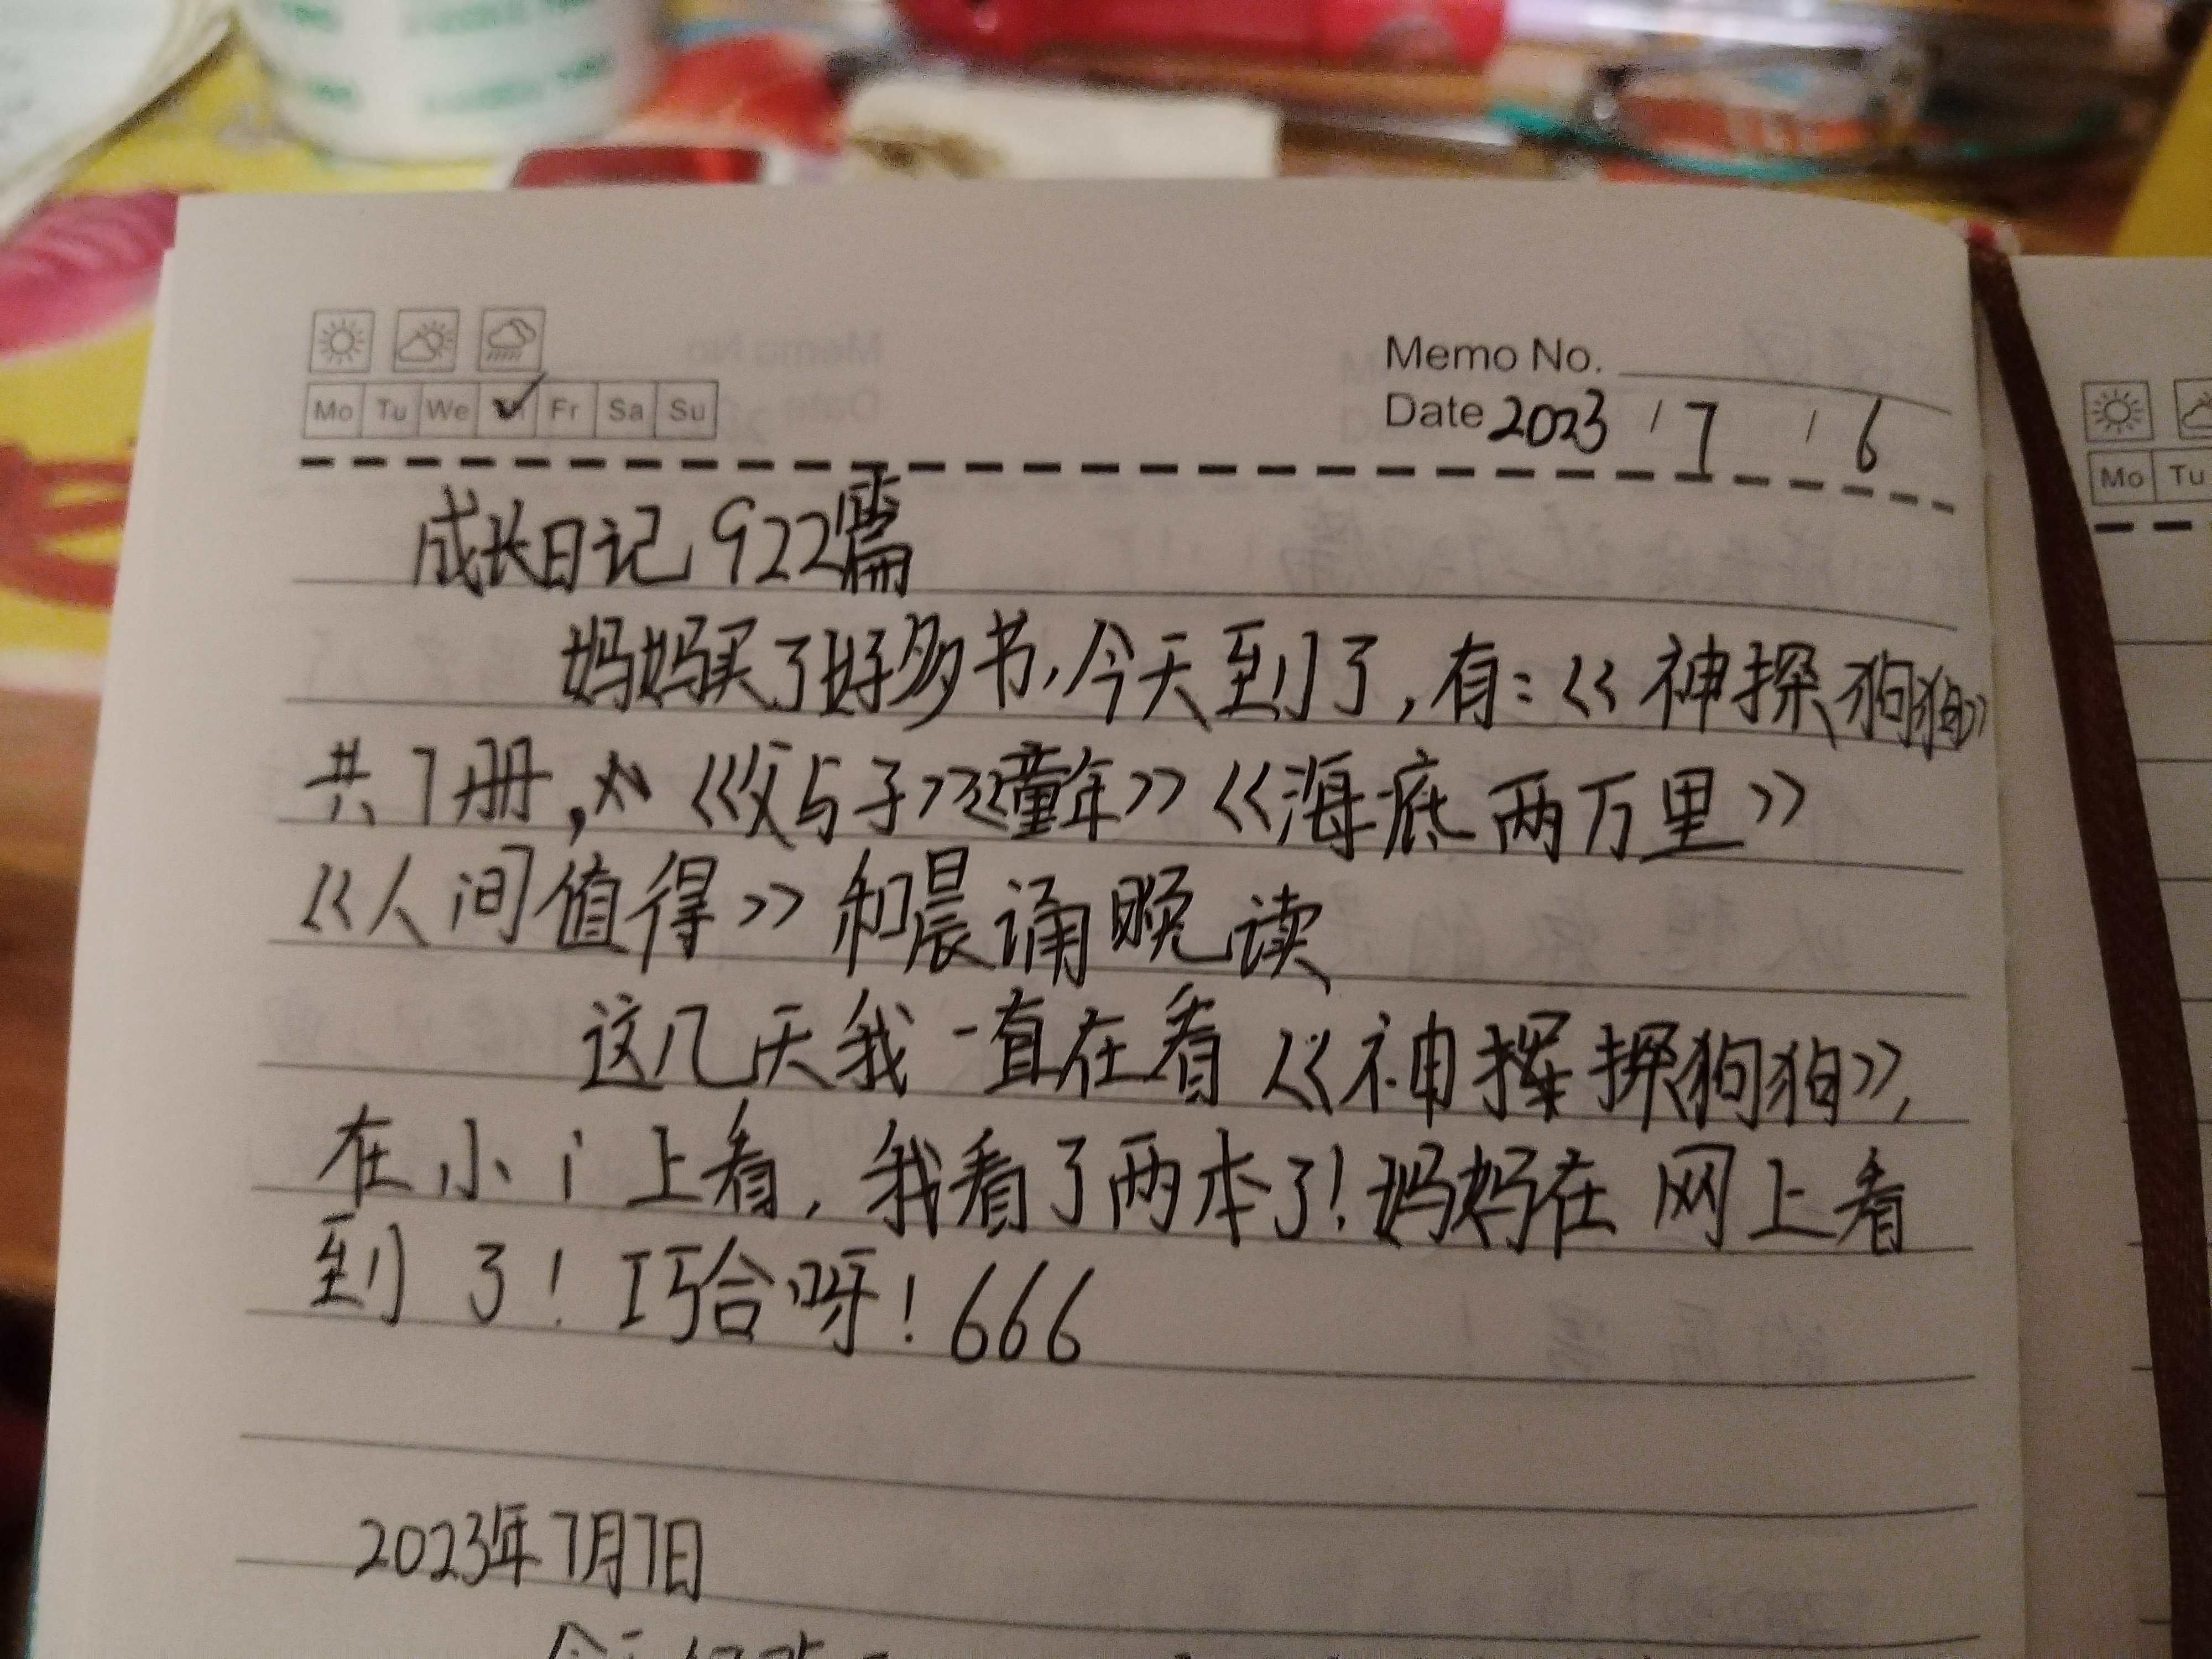 Memo No.
Date 2023 / 7 / 6
Mo Tu We Fr Sa Su
成长日记922篇
妈妈买了好多书,今天到了,有:《神探狗狗》
共7册,《父与子》《童年》《海底两万里》
《人间值得》和晨诵晚读
这几天我一直在看《神探狗狗》,
在小i上看,我看了两本了!妈妈在网上看
到了!巧合呀!666
2023年7月7日
Mo Tu